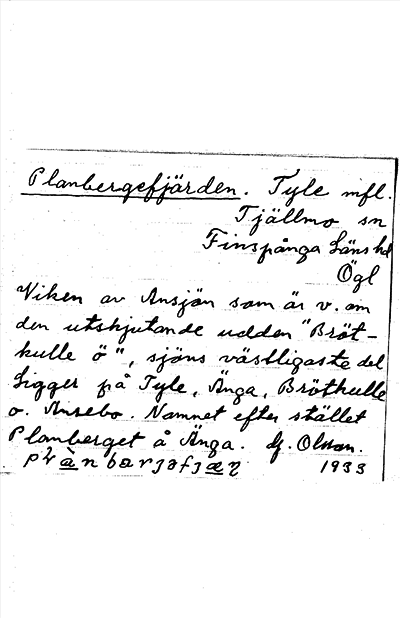 Planbergefjärden. Tyle mfl.
Tjällmo sn
Finspånga Läns hd
Ögl
Viken av Ansjön som är v. om
den utskjutande udden "Bröt-
kulle ö", sjöns västligaste del
Ligger på Tyle, Änga, Brötkulle
o. Ansebo. Namnet efter stället
Planberget å Änga. G. Olsson.
1933